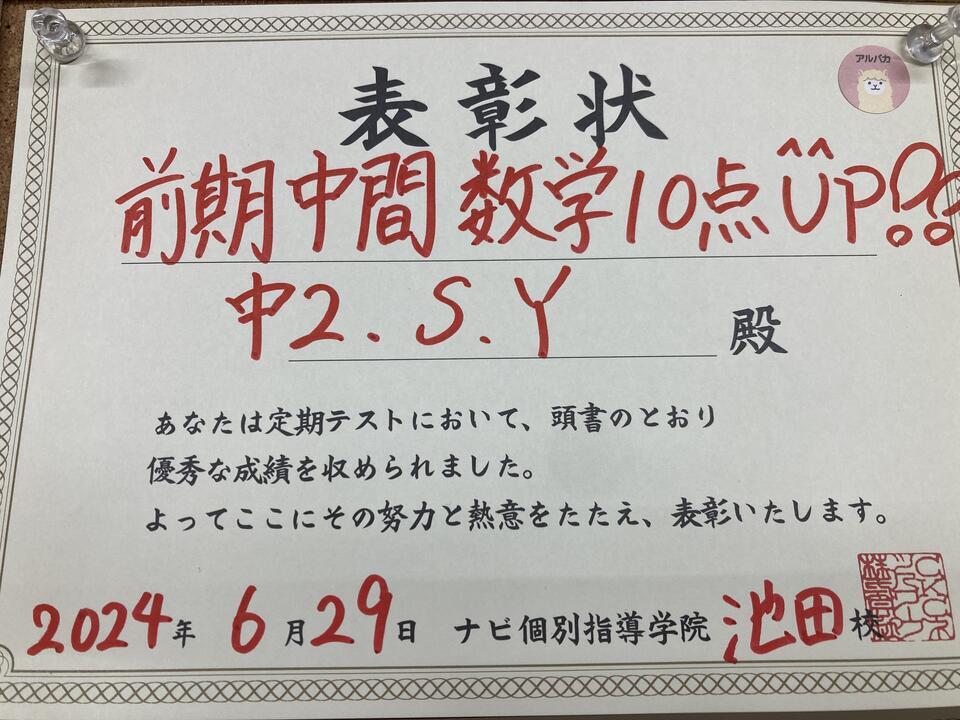 アルパカ
表彰状
前期中間 数学10点UP!!
中2.S.Y 殿
あなたは定期テストにおいて、頭書のとおり
優秀な成績を収められました。
よってここにその努力と熱意をたたえ、表彰いたします。
2024年 6月29日 ナビ個別指導学院 池田校